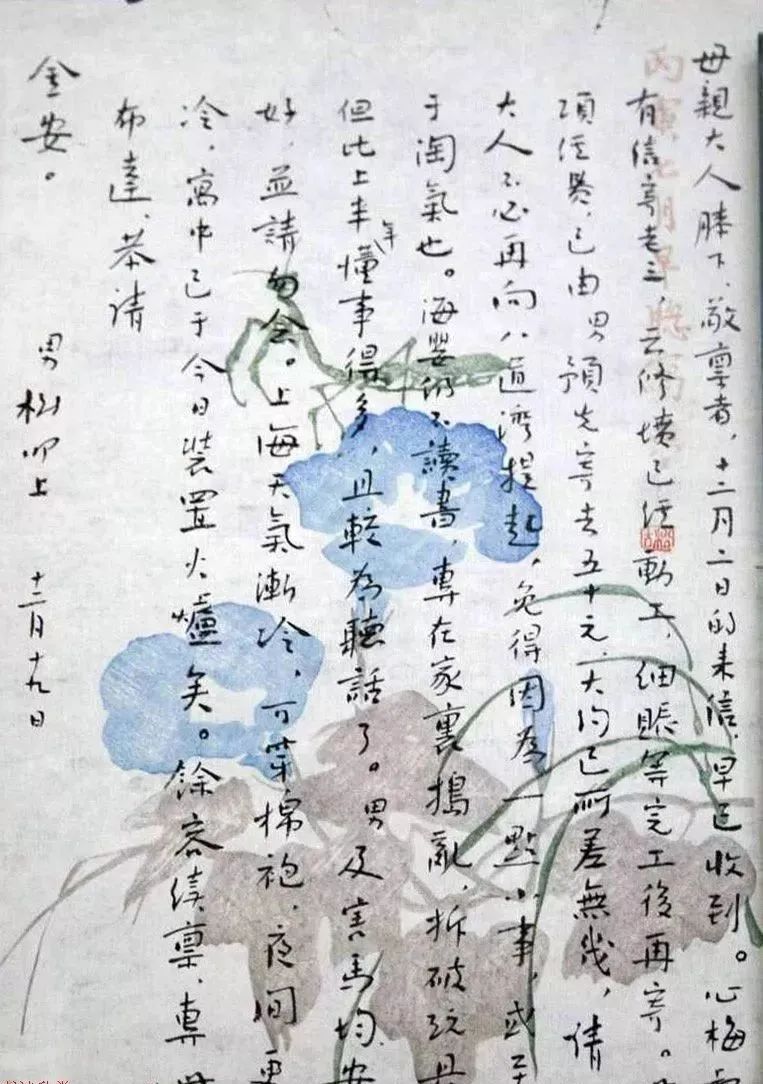 母親大人膝下，敬稟者，十二月二日的来信，早已收到。心梅
有信寄老三，云修墳已經動工，細賬等完工後再寄。
項經費，已由男預先寄去五十元，大約已所差無幾，請
大人不必再向八道灣提起，免得因為一點小事，或至
于淘氣也。海嬰仍不讀書，專在家裏搗亂，拆破玩具
但比上半年懂事得多，且較為聽話了。男及害馬均安
好，並請勿念。上海天氣漸冷，可穿棉袍，夜間更
冷，寓中已于今日裝置火爐矣。餘容續稟，專此
布達，恭請
金安。
男樹叩上
十二月十九日